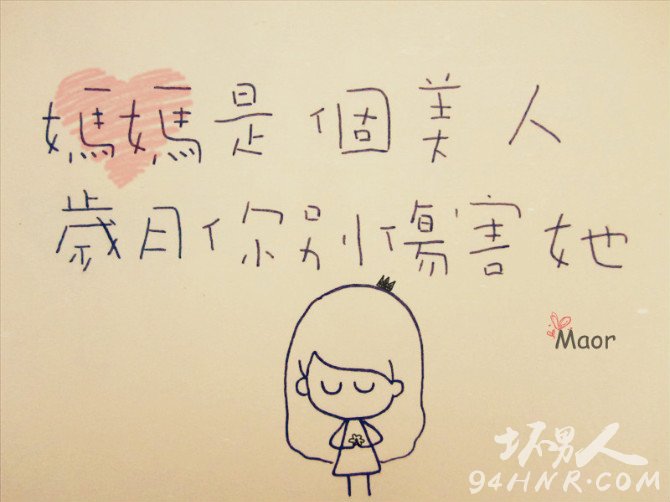 媽媽是個美人
歲月你別傷害她
Maor
坏男人
94HNR.COM